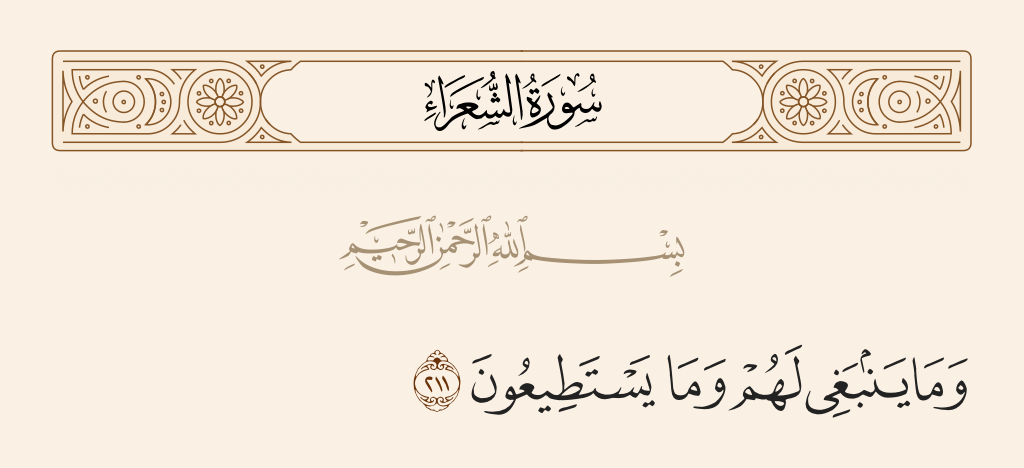 سُورَةُ الشُّعَرَاءِ
بِسْمِ ٱللَّهِ ٱلرَّحْمَٰنِ ٱلرَّحِيمِ
وَمَا يَنۢبَغِى لَهُمْ وَمَا يَسْتَطِيعُونَ ٢١١